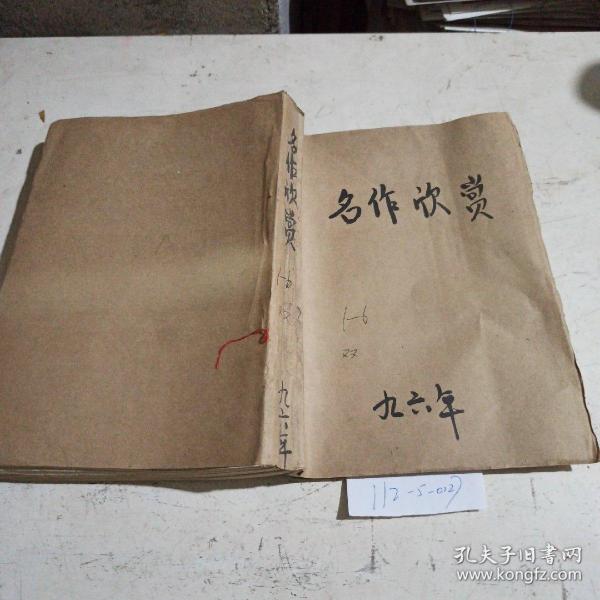 名作欣赏
1-6
双
九六年
名作欣赏
1-6
双
九六年
112-5-027
孔夫子旧书网
www.kongfz.com